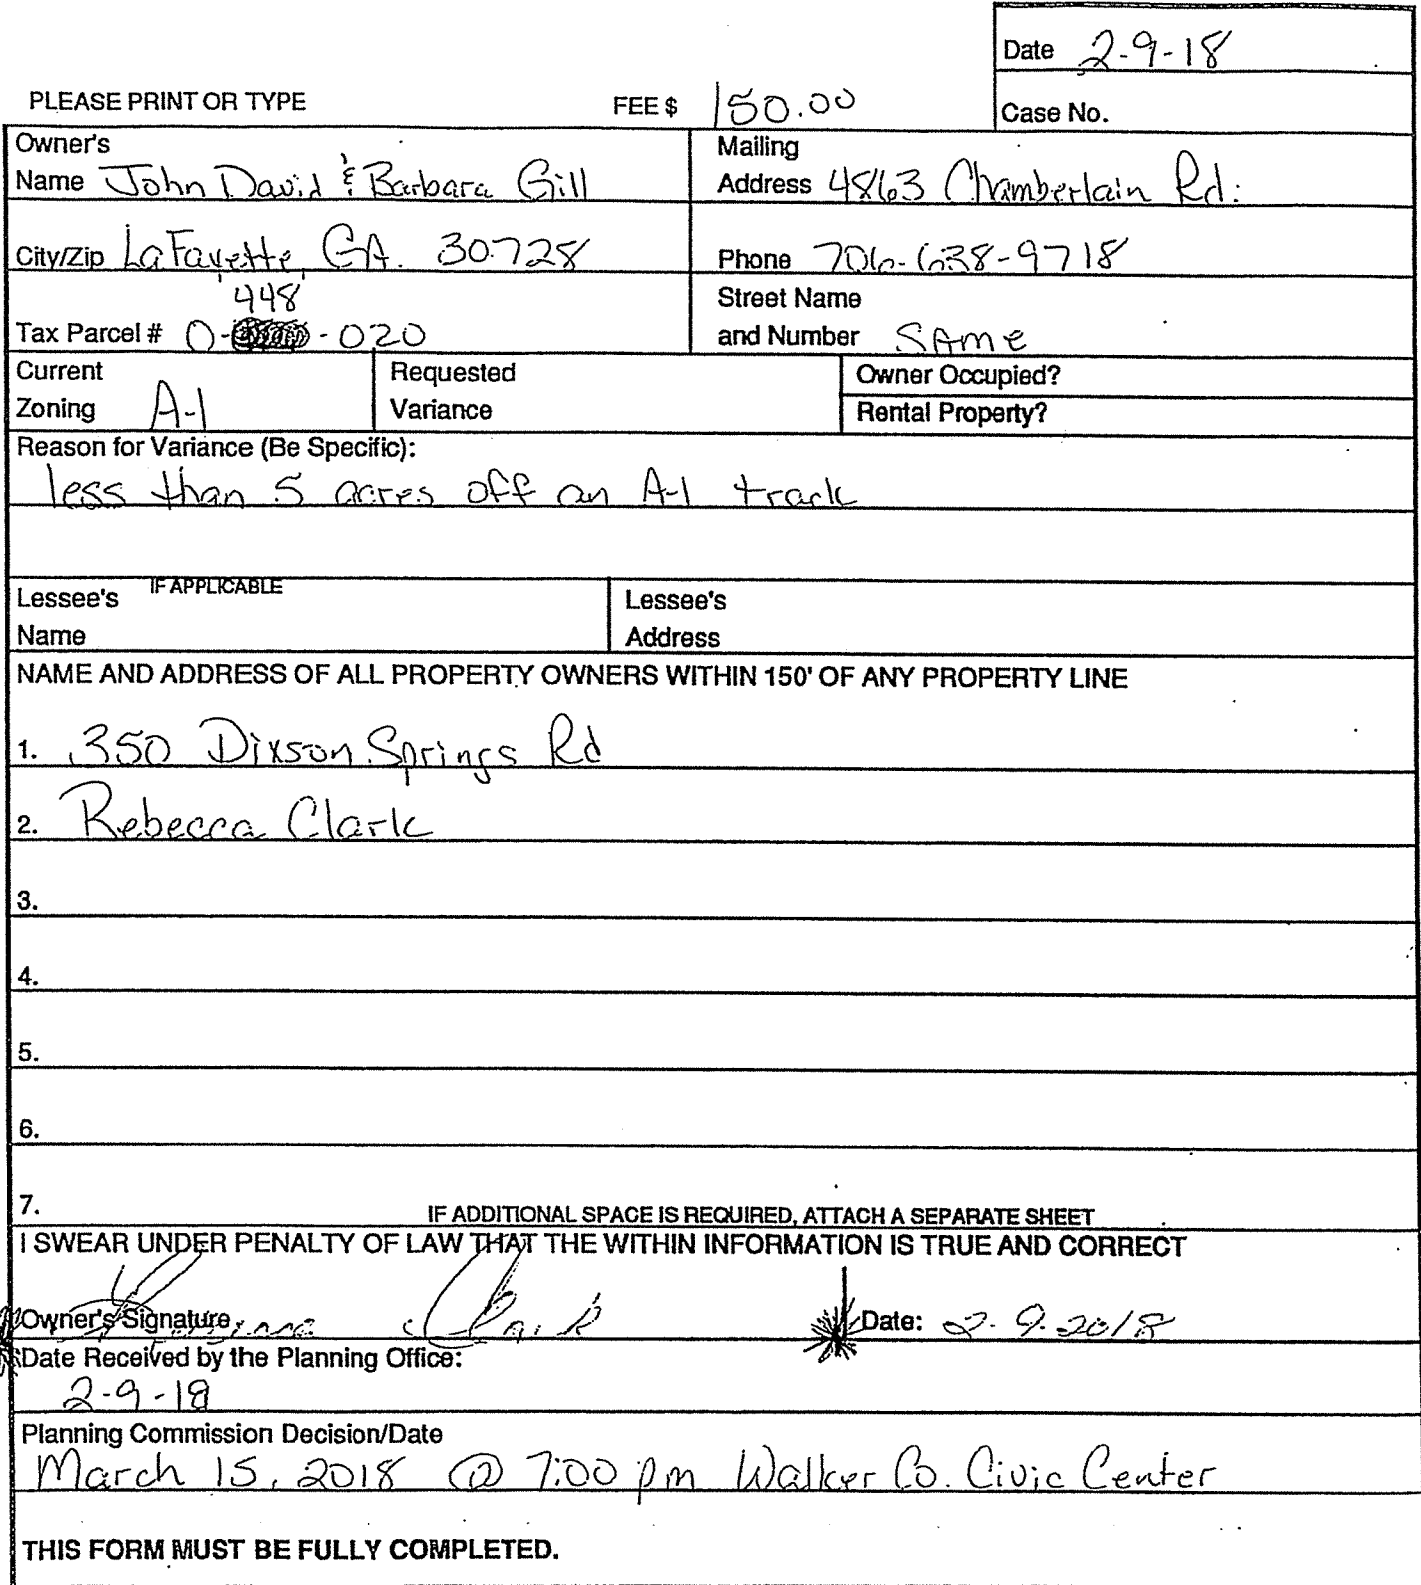 Date 2-9-18
PLEASE PRINT OR TYPE FEE $ 150.00 Case No.
Owner's Mailing
Name John David & Barbara Gill Address 4863 Chamberlain Rd.
City/Zip LaFayette, GA. 30728 Phone 706-638-9718
448 Street Name
Tax Parcel # 0- -020 and Number SAME
Current Requested Owner Occupied?
Zoning A-1 Variance Rental Property?
Reason for Variance (Be Specific):
less than 5 acres off an A-1 track
Lessee's IF APPLICABLE Lessee's
Name Address
NAME AND ADDRESS OF ALL PROPERTY OWNERS WITHIN 150' OF ANY PROPERTY LINE
1. 350 Dixson Springs Rd
2. Rebecca Clark
3.
4.
5.
6.
7. IF ADDITIONAL SPACE IS REQUIRED, ATTACH A SEPARATE SHEET
I SWEAR UNDER PENALTY OF LAW THAT THE WITHIN INFORMATION IS TRUE AND CORRECT
Owner's Signature Clark Date: 2-9-2018
Date Received by the Planning Office:
2-9-18
Planning Commission Decision/Date
March 15, 2018 @ 7:00 pm Walker Co. Civic Center
THIS FORM MUST BE FULLY COMPLETED.